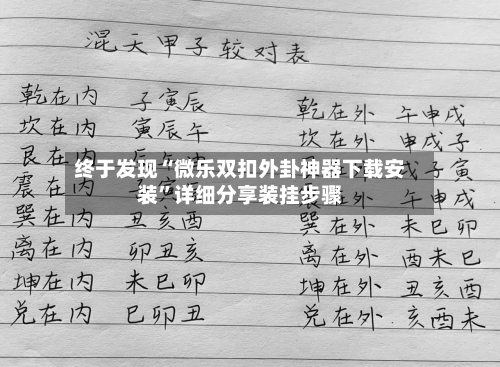 混天甲子较对表
乾在内 子寅辰 乾在外 午申戌
坎在内 寅辰午 坎在外 申戌子
艮在内 戌子寅
终于发现“微乐双扣外卦神器下载安
装”详细分享装挂步骤
震在内 午申戌
巽在内 丑亥酉 巽在外 未巳卯
离在内 卯丑亥 离在外 酉未巳
坤在内 未巳卯 坤在外 丑亥酉
兑在内 巳卯丑 兑在外 亥酉未